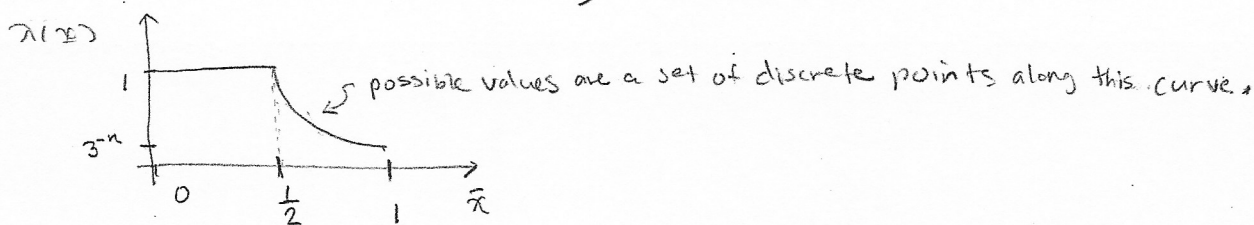 λ(x)
possible values are a set of discrete points along this curve.
1
3⁻ⁿ
0
1/2
1
x̄